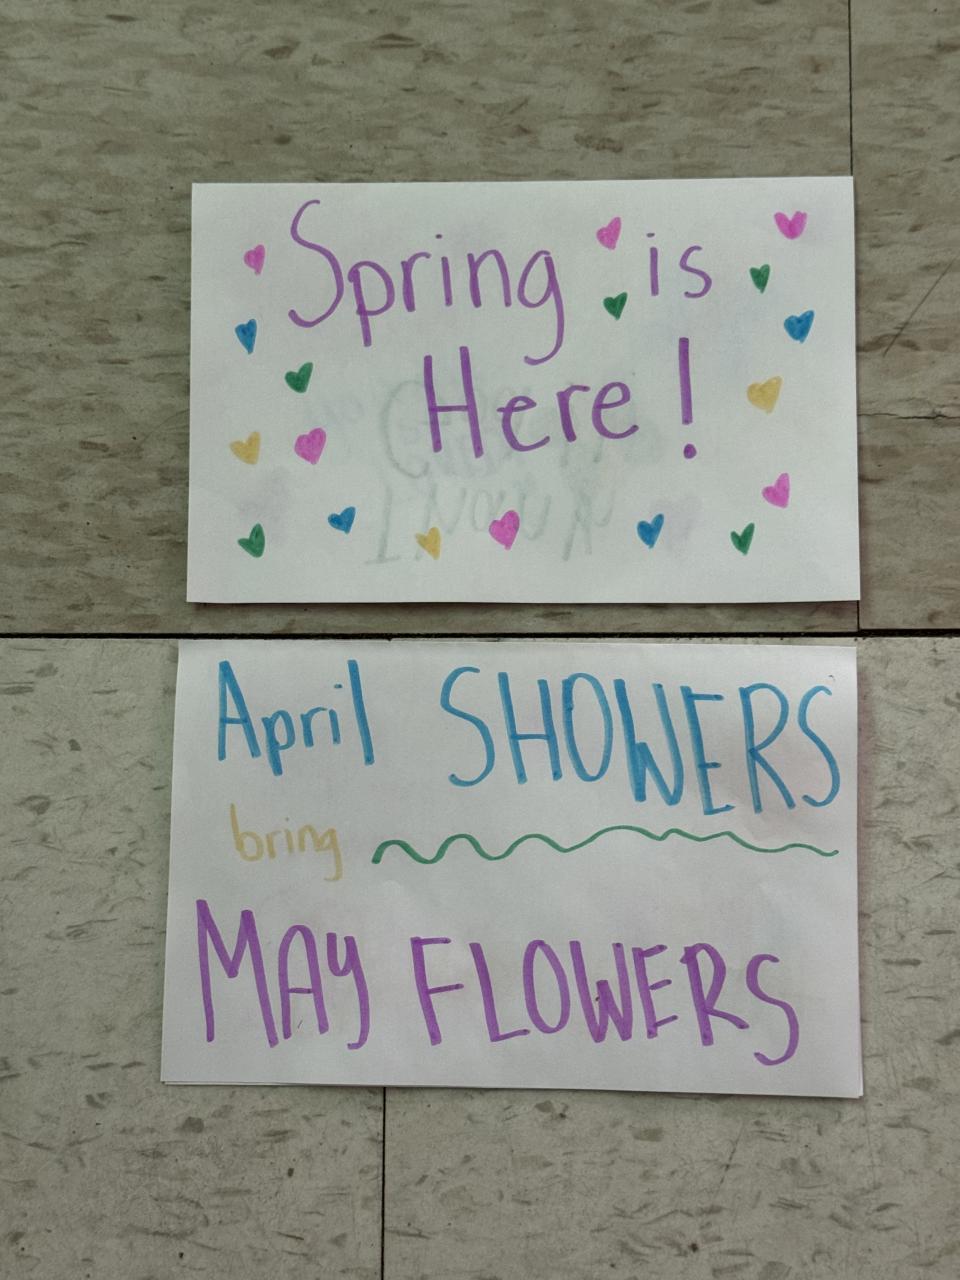 Spring is
Here!
April SHOWERS
bring
MAY FLOWERS